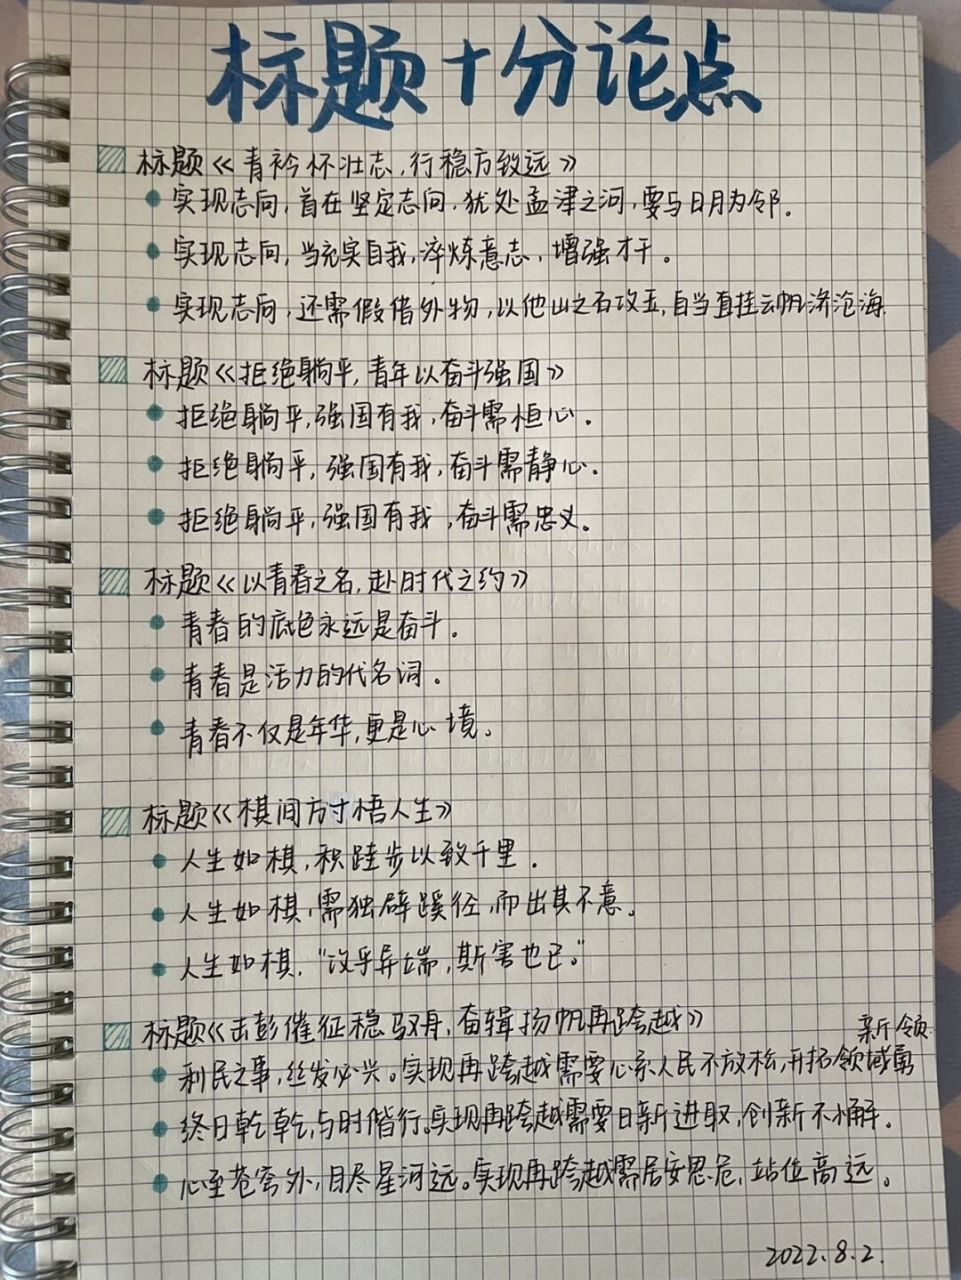 标题十分论点
标题《青衿怀壮志,行稳方致远》
实现志向,首在坚定志向,犹处孟津之河,要与日月为邻.
实现志向,当充实自我,淬炼意志,增强才干。
实现志向,还需假借外物,以他山之石攻玉,自当直挂云帆济沧海
标题《拒绝躺平,青年以奋斗强国》
拒绝躺平,强国有我,奋斗需恒心.
拒绝躺平,强国有我,奋斗需静心.
拒绝躺平,强国有我,奋斗需忠义.
标题《以青春之名,赴时代之约》
青春的底色永远是奋斗.
青春是活力的代名词.
青春不仅是年华,更是心境。
标题《棋间方寸悟人生》
人生如棋,积跬步以致千里.
人生如棋,需独辟蹊径,而出其不意。
人生如棋,"攻乎异端,斯害也已。"
标题《击彭催征稳驭舟,奋辑扬帆再跨越》
新领
利民之事,丝发必兴。实现再跨越需要心系人民不放松,开拓领域勇
终日乾乾,与时偕行.实现再跨越需要日新进取,创新不懈.
心至苍穹外,目尽星河远。实现再跨越需居安思危,站位高远。
2022.8.2.